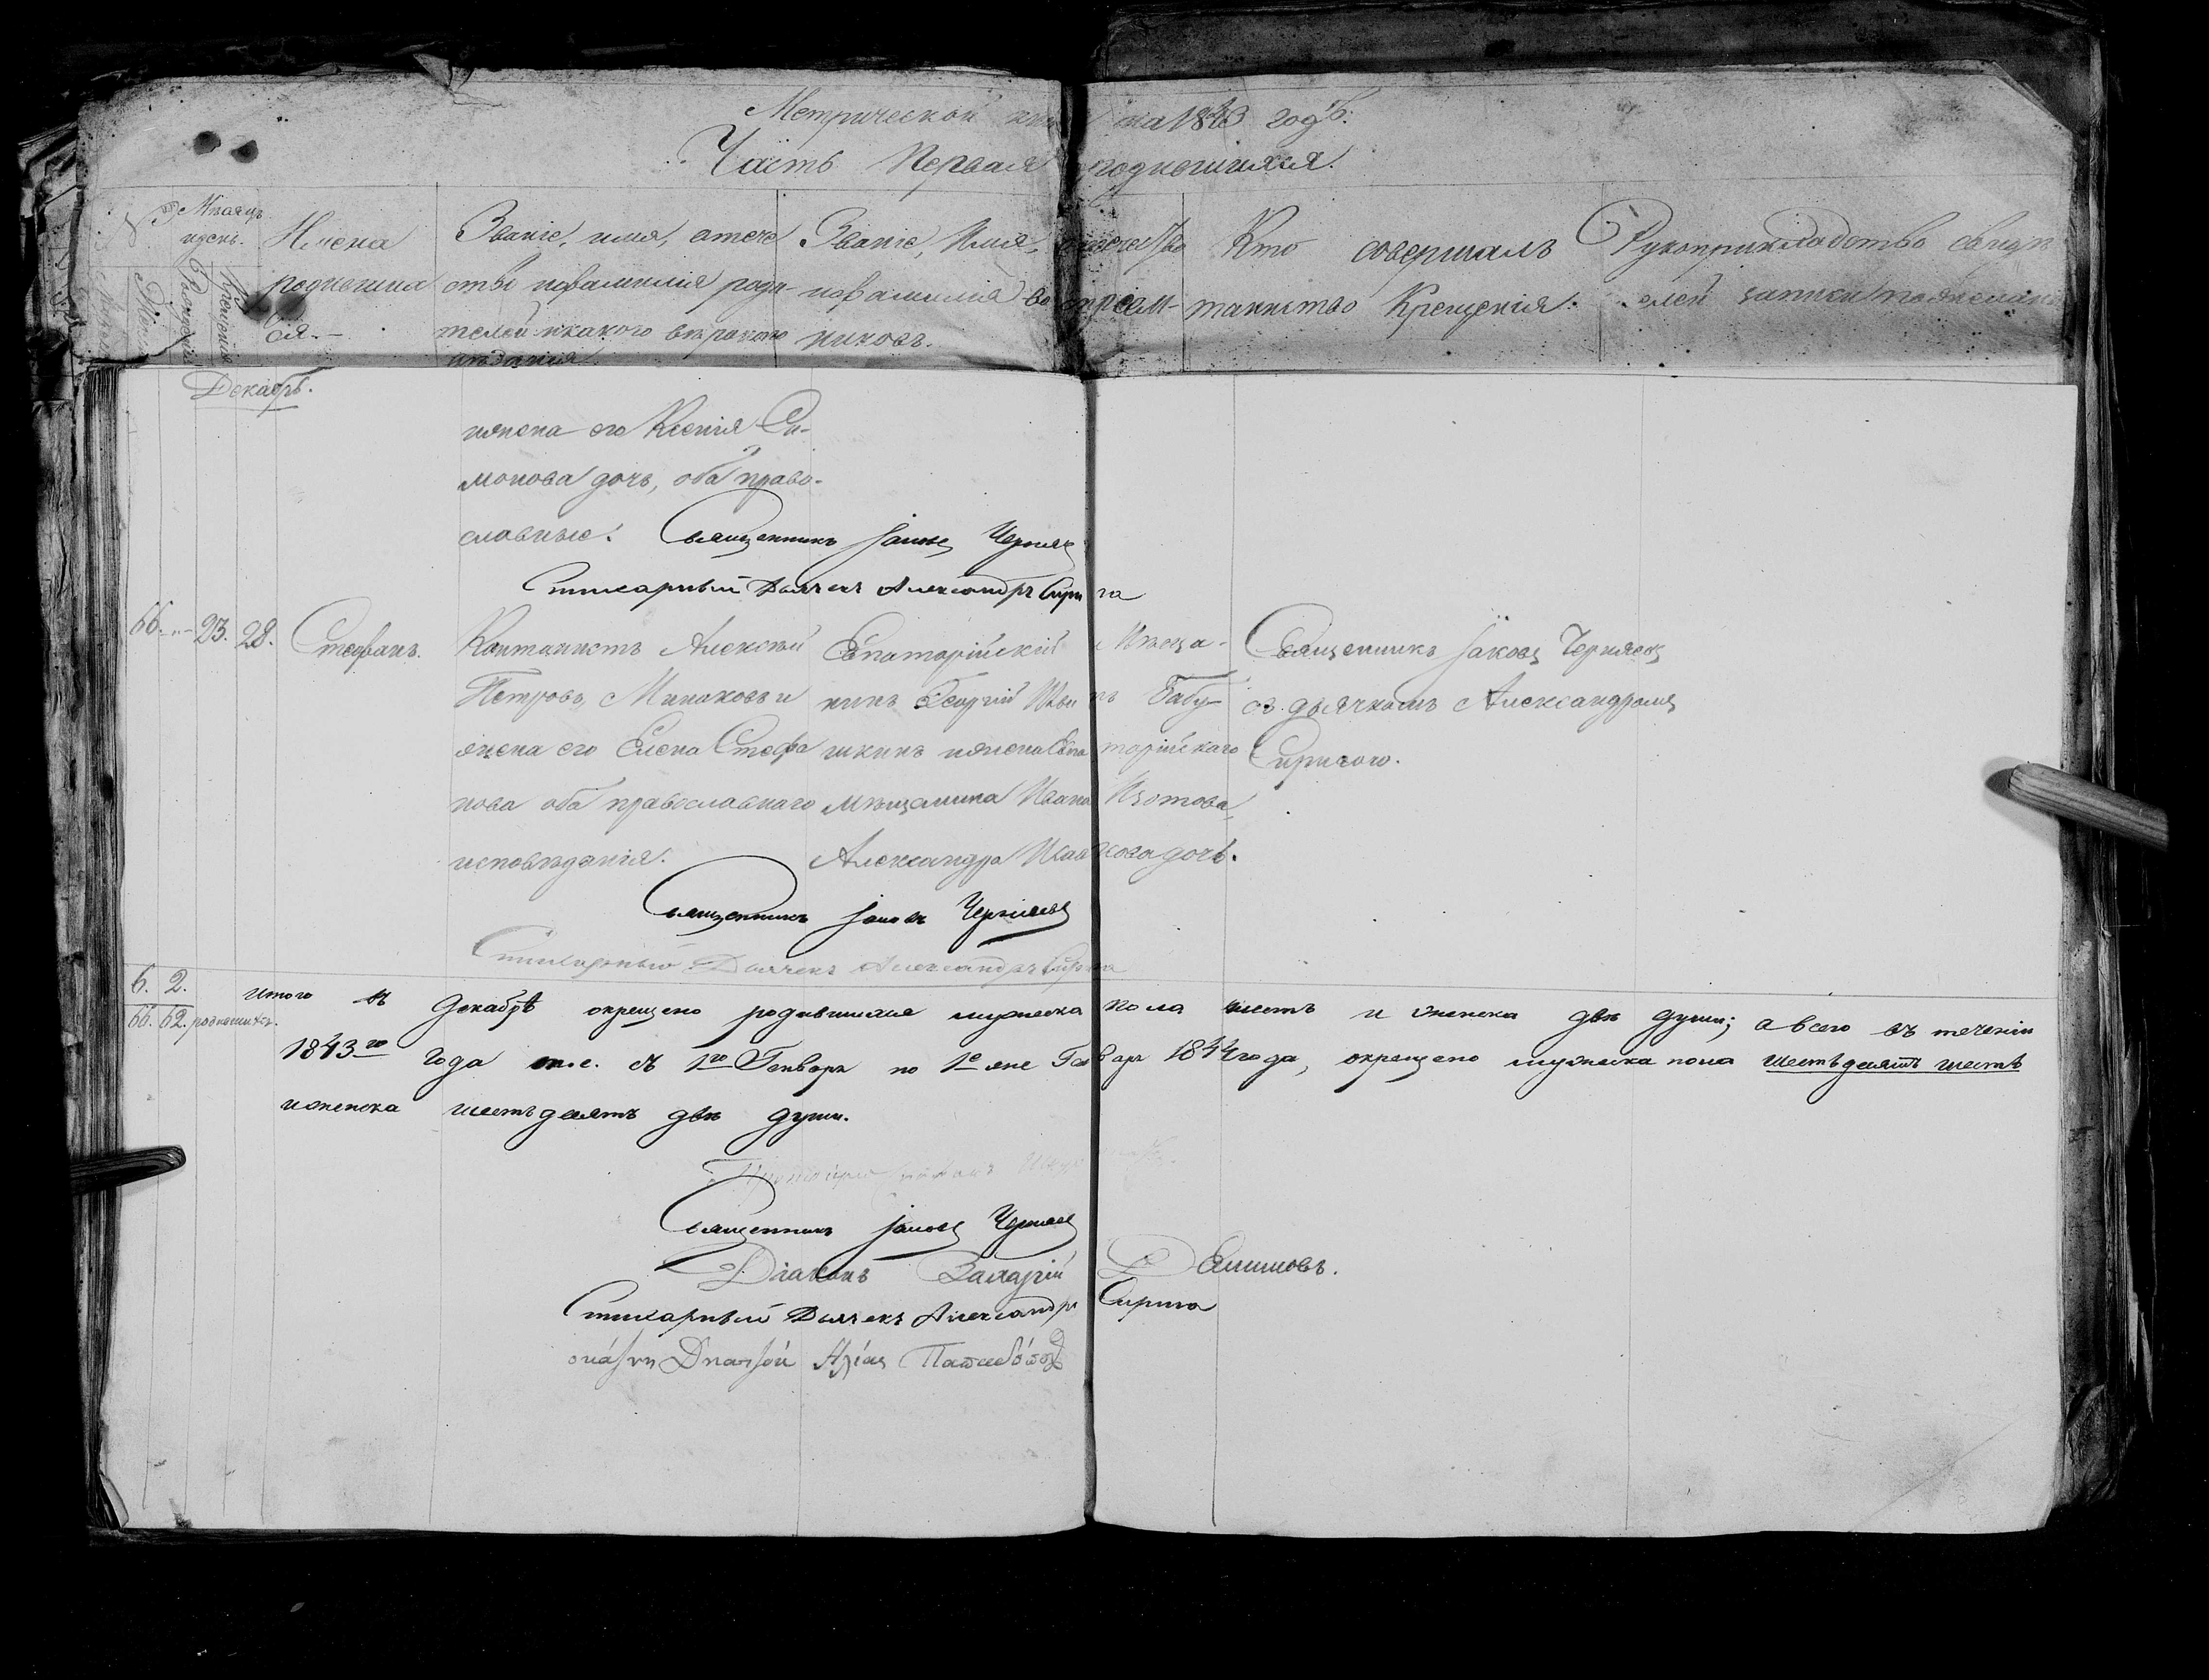 Метрической на 1843 годъ.
Часть Первая родившихся.
№
Мѣсяцъ
и день.
Рожденія
Крещенія
Имена
родивших
ся.
Званіе, имя, отече
ство и фамилія роди-
телей и какого вѣроиспо
вѣданія.
Званіе, Имя, отечество
и фамилія воспріем-
никовъ.
Кто совершалъ
таинство Крещенія.
Рукоприкладство свидѣ
телей записи по желанію
Декабрь.
и жена его Ксенія Си-
монова дочь, оба право-
славные.
Священникъ Іаковъ Черняев
Стихарный Дьячекъ Александръ Сирига
66. „ 23. 28.
Стефанъ.
Кантанистъ Алексѣй
Петровъ Минаковъ и
жена его Елена Стефа
нова оба православнаго
исповѣданія.
Евпаторійскій Мѣща-
нинъ Георгій Иванъ Бабу-
шкинъ и жена Евпаторійскаго
мѣщанина Ивана Изотова,
Александра Иванова дочь.
Священникъ Іаковъ Черняевъ
съ дьячкомъ Александромъ
Сиригою.
Священникъ Іаковъ Черняевъ
Стихарный Дьячекъ Александръ Сирига
6. 2.
66. 62. родившихся.
Итого въ Декабрѣ окрещено родившихся мужеска пола шесть и женска двѣ души; а всего въ теченіи
1843го года т.е. съ 1го Генваря по 1е Генваря 1844 года, окрещено мужеска пола шестьдесятъ шесть
и женска шестьдесятъ двѣ души.
Священникъ Іаковъ Черняевъ
Діаконъ Захарій
Стихарный Дьячекъ Александръ Сирига